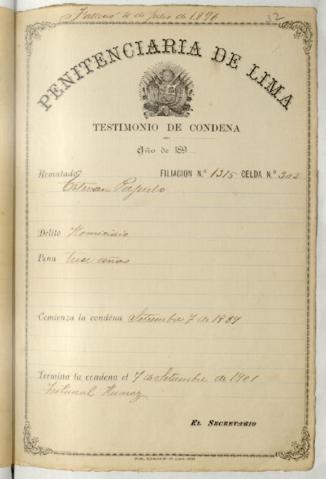 de Julio de 1896
32
PENITENCIARIA DE LIMA
TESTIMONIO DE CONDENA
Año de 189
Rematado FILIACION N.º 1315 CELDA N.º 302
Estevan
Delito Homicidio
Pena trece años
Comienza la condena Setiembre 7 de 1889
Termina la condena el 7 de Setiembre de 1901
Tribunal Huaraz
EL SECRETARIO